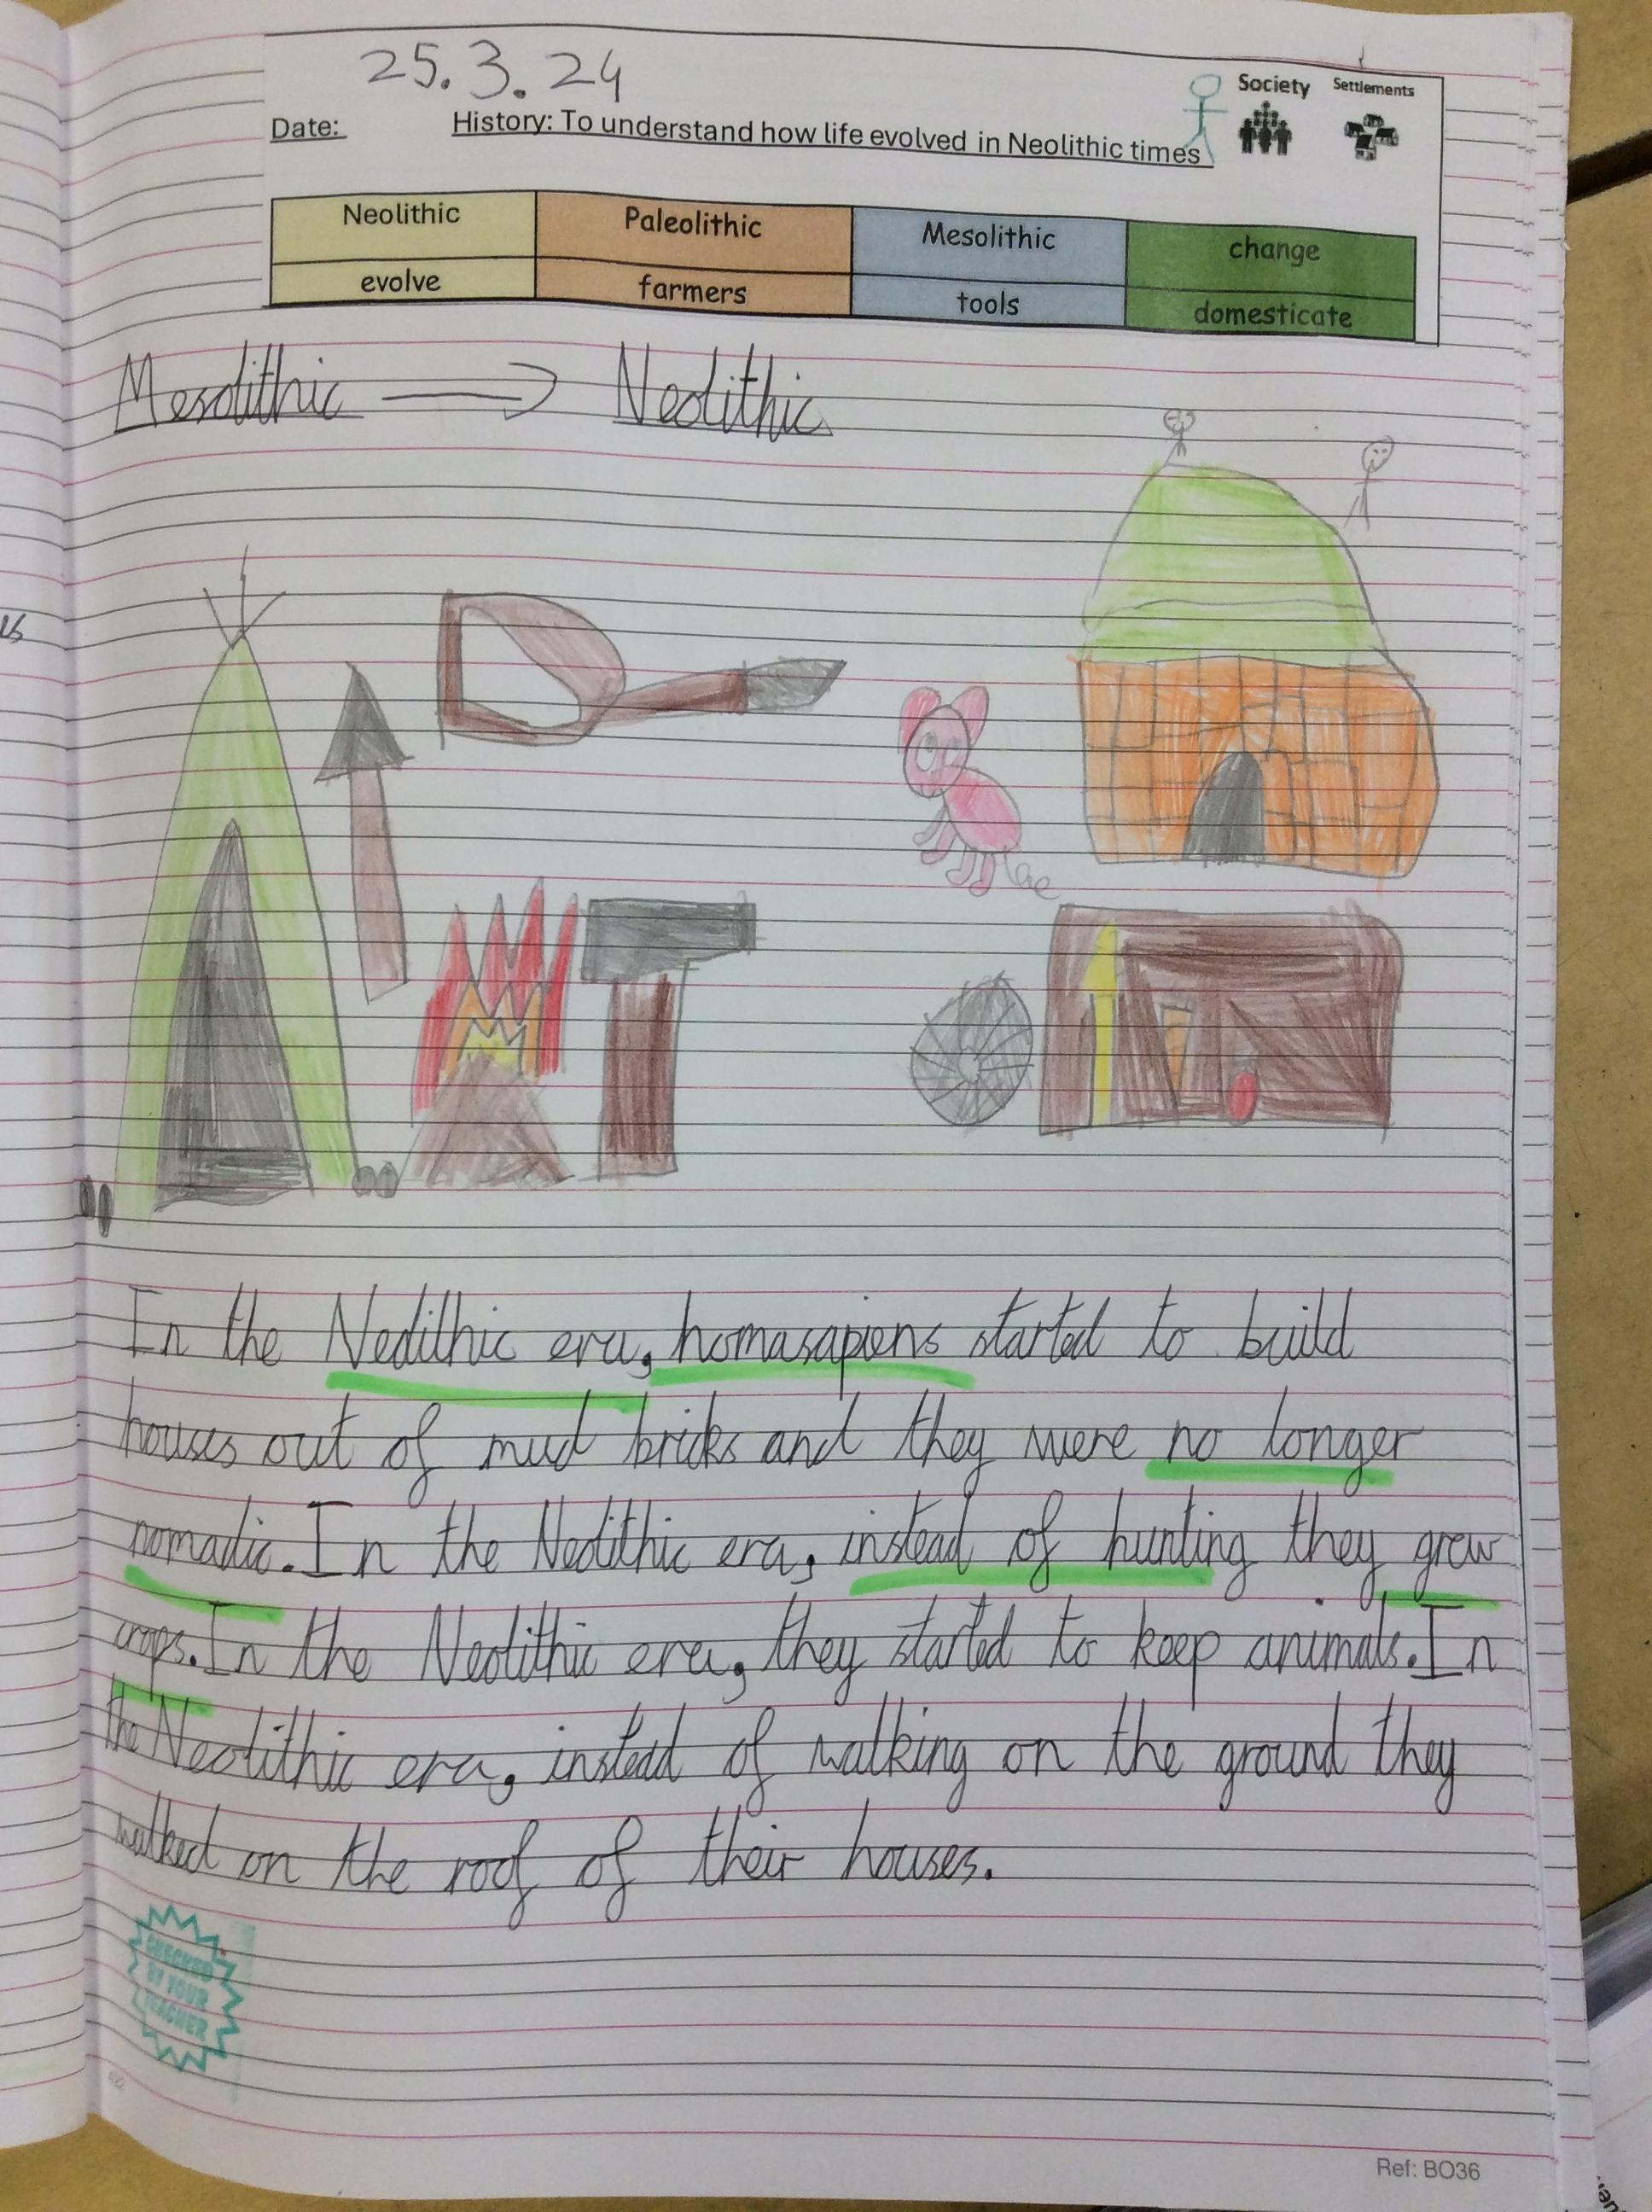 25.3.24
Society Settlements
Date: History: To understand how life evolved in Neolithic times
Neolithic Paleolithic Mesolithic change
evolve farmers tools domesticate
Mesolithic → Neolithic
In the Neolithic era, homasapiens started to build
houses out of mud bricks and they were no longer
nomadic. In the Neolithic era, instead of hunting they grow
crops. In the Neolithic era, they started to keep animals. In
the Neolithic era, instead of walking on the ground they
walked on the roof of their houses.
CHECKED
BY YOUR
TEACHER
Ref: BO36